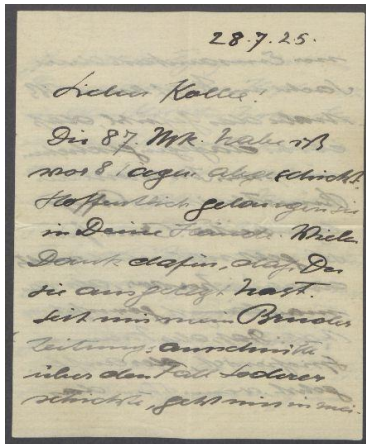 28.7.25.
Lieber Kolle!
Die 87. Mk. habe ich
vor 8 Tagen abgeschickt.
Hoffentlich gelangen sie
in Deine Hände. Vielen
Dank dafür, daß Du
sie ausgelegt hast.
Seit mir mein Bruder
Zeitungsausschnitte
über den Fall Lederer
schickte, geht mir in mei-